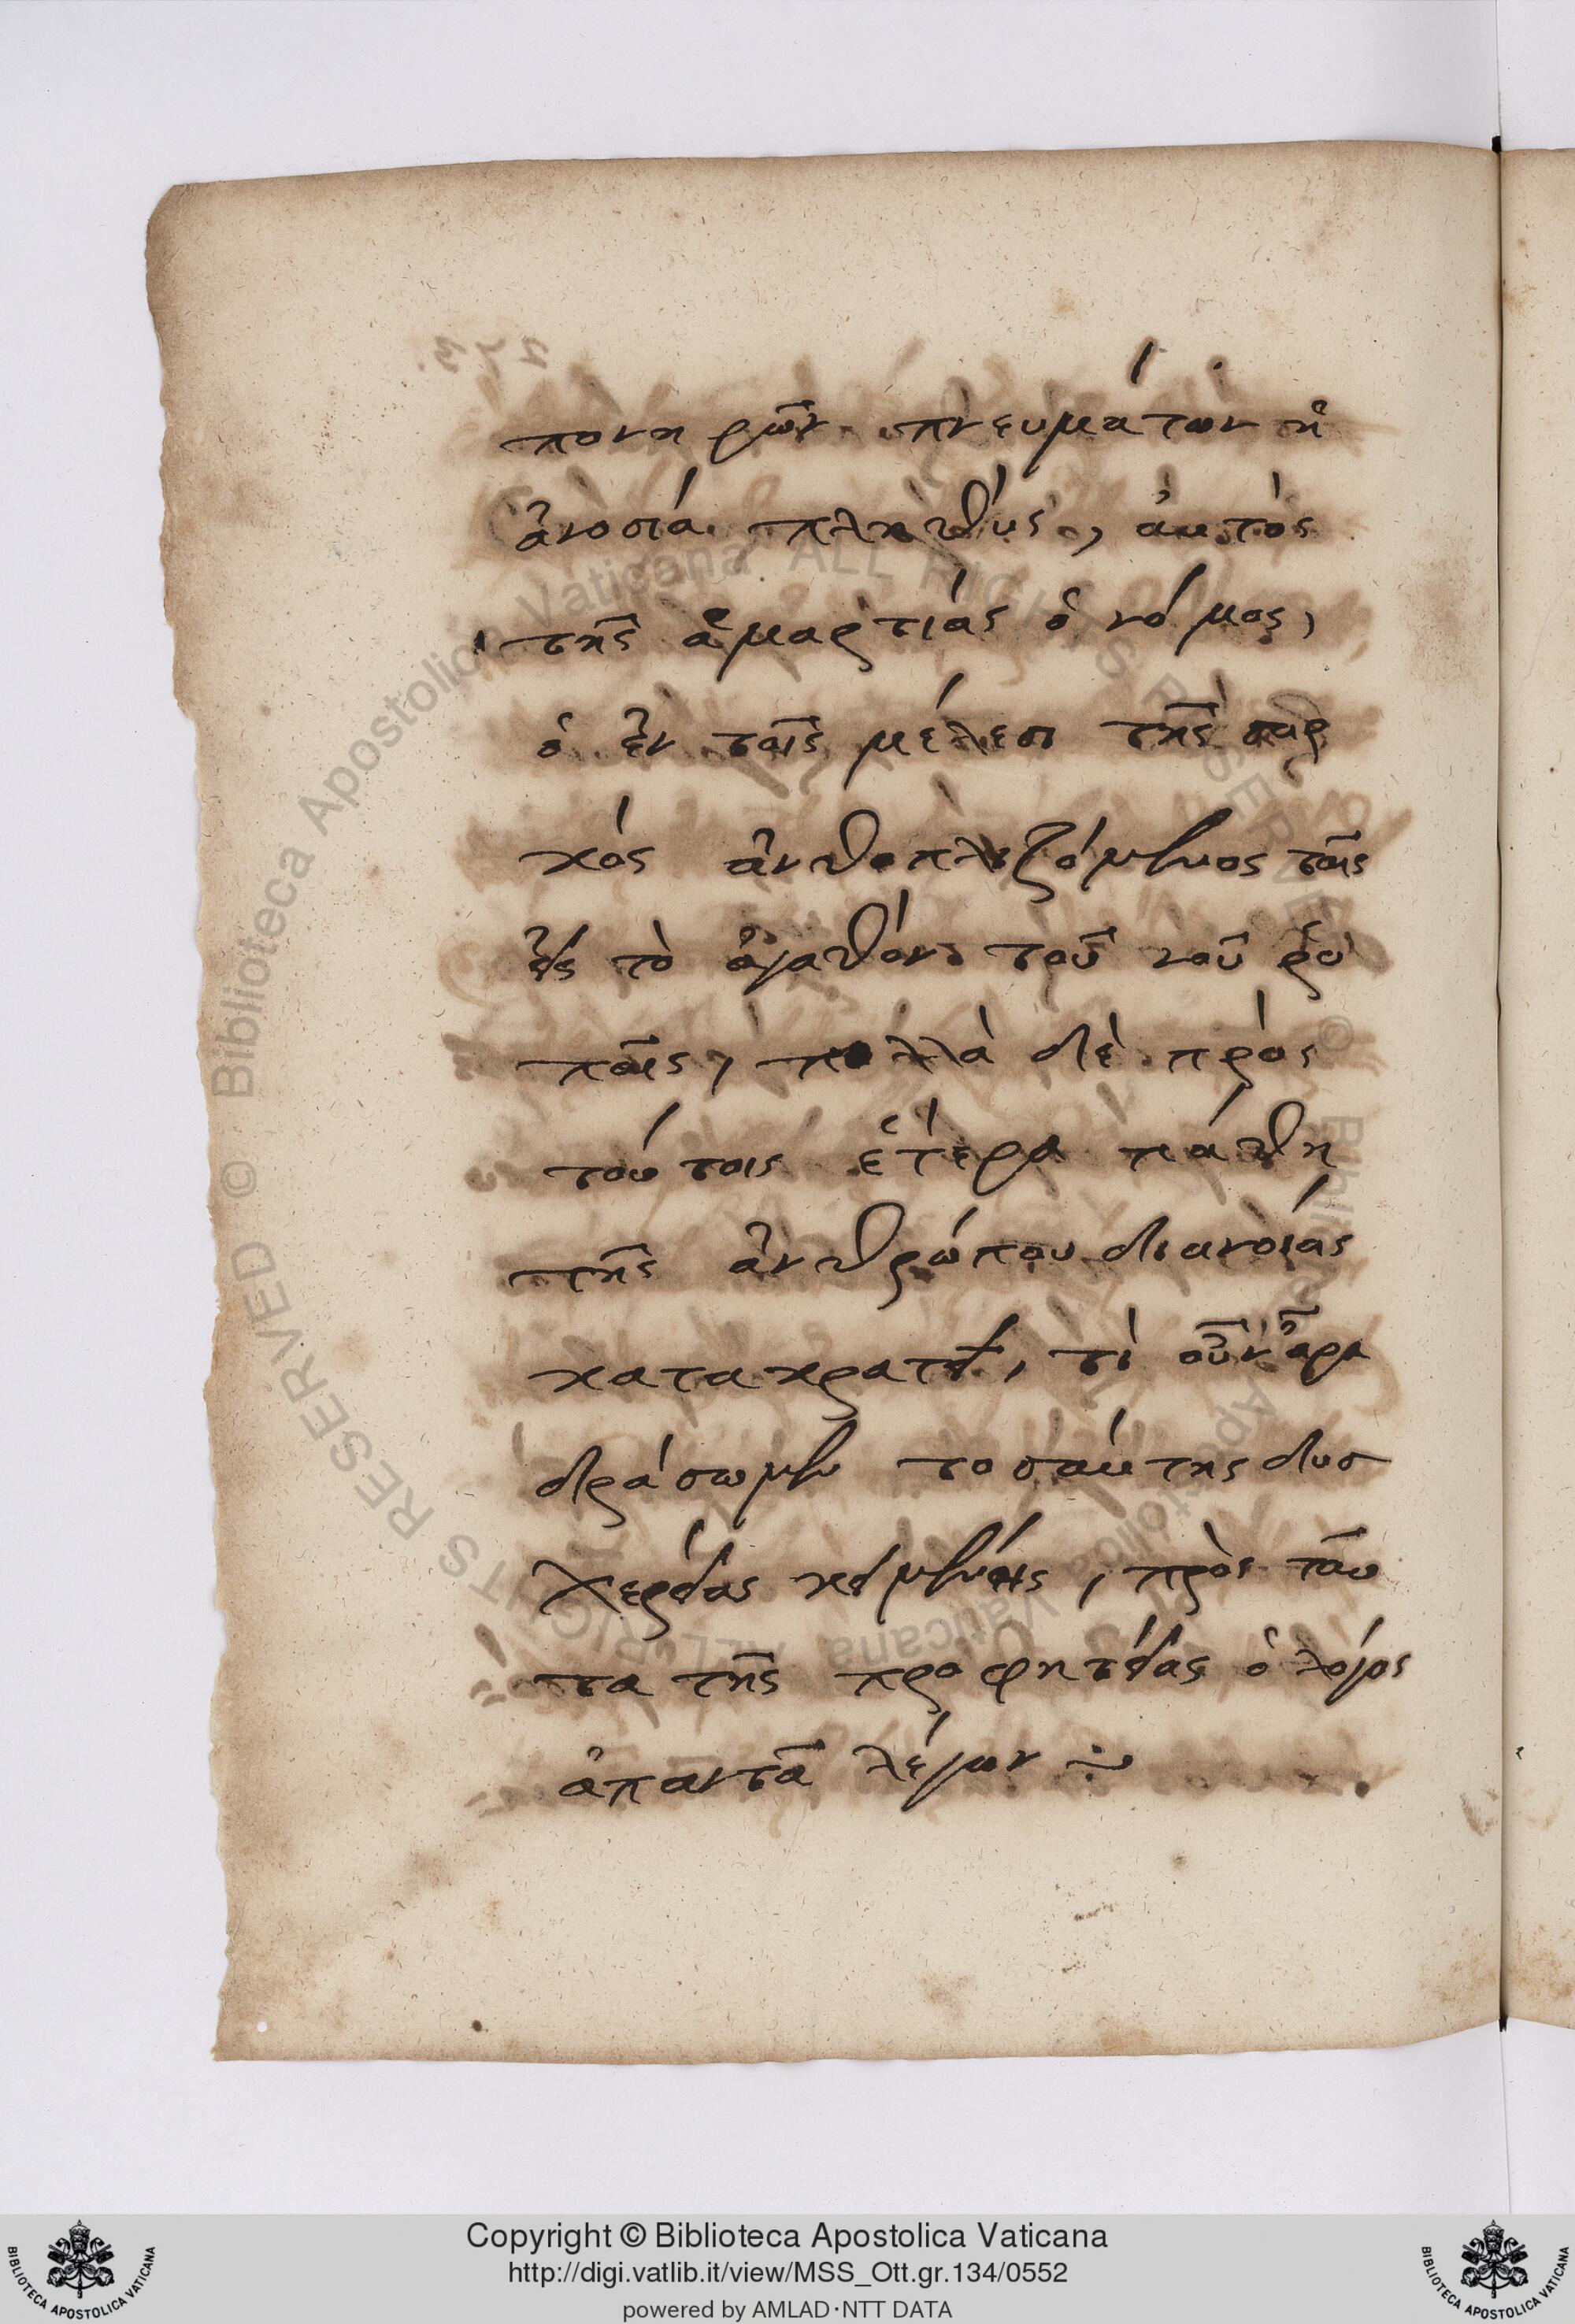 πονηρῶν πνευμάτων ἡ
ἀνοσία πληθύς, ἀυτὸς
τῆς ἁμαρτίας ὁ νόμος,
ὁ ἐν τοῖς μέλεσι τῆς σαρ
κὸς ἀνθοπλιζόμενος ταῖς
εἰς τὸ ἀγαθὸν τοῦ νοῦ ῥο
παῖς, πολλὰ δὲ πρὸς
τούτοις ἕτερα πάθη
τῆς ἀνθρώπου διανοίας
κατακρατεῖ, τί οὖν ἆρα
δράσωμεν τοσαύτης δυσ
χερείας κειμένης, πρὸς ταῦ
τα τῆς προφητείας ὁ λόγος
ἀπαντᾶ λέγων
Biblioteca Apostolica Vaticana ALL RIGHTS RESERVED ©
Copyright © Biblioteca Apostolica Vaticana
http://digi.vatlib.it/view/MSS_Ott.gr.134/0552
powered by AMLAD·NTT DATA
BIBLIOTECA APOSTOLICA VATICANA
BIBLIOTECA APOSTOLICA VATICANA